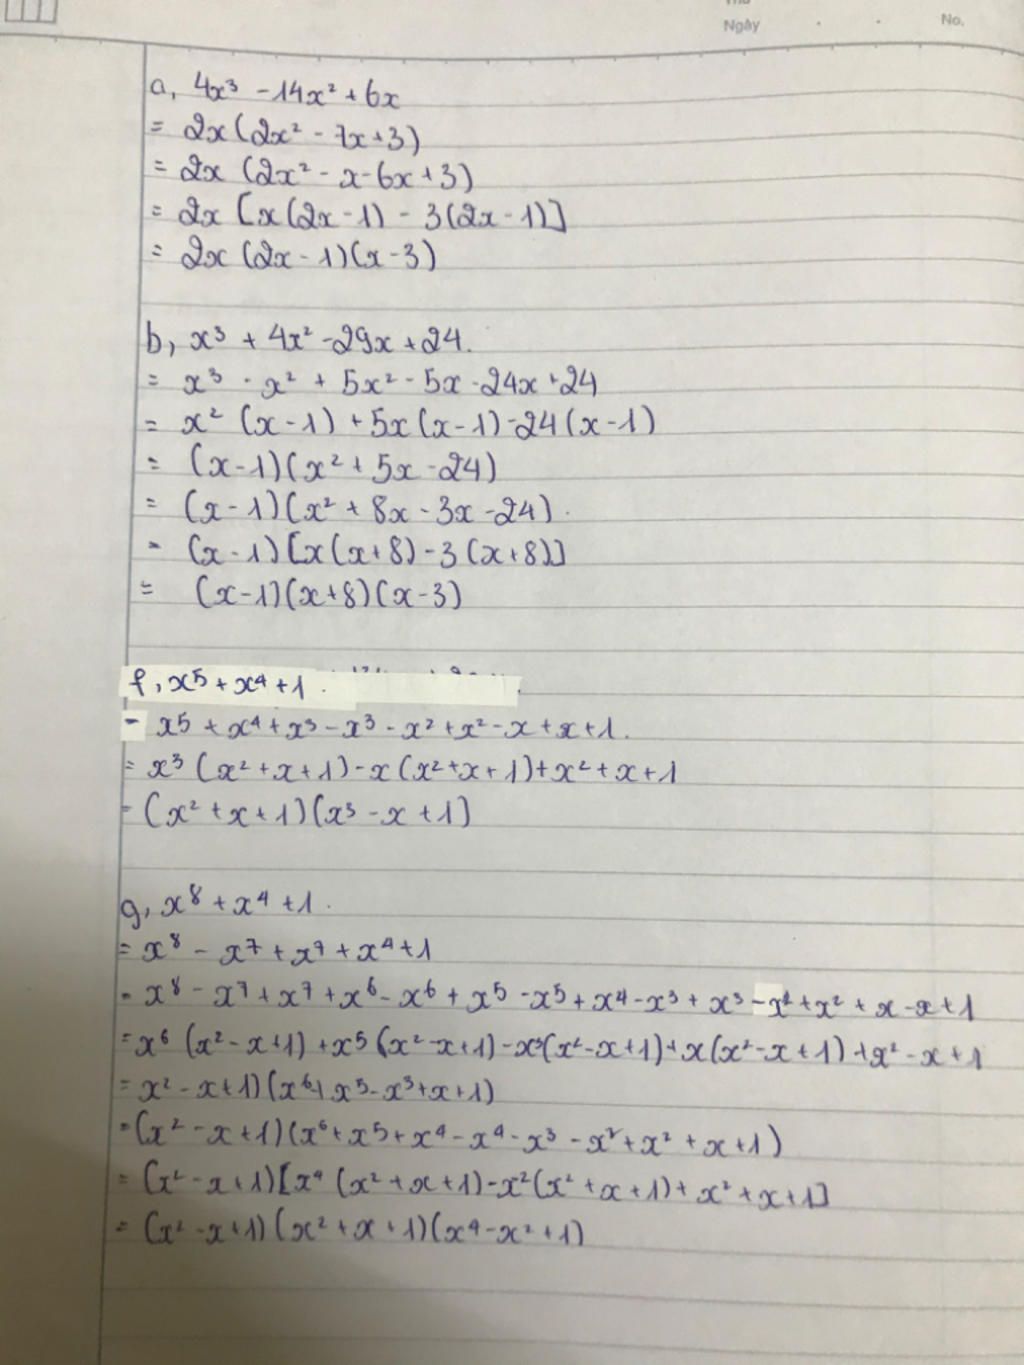 Thứ
Ngày . . No.
a, 4x³ - 14x² + 6x
= 2x(2x² - 7x + 3)
= 2x (2x² - x - 6x + 3)
= 2x [x(2x - 1) - 3(2x - 1)]
= 2x (2x - 1)(x - 3)
b, x³ + 4x² - 29x + 24.
= x³ - x² + 5x² - 5x - 24x + 24
= x² (x - 1) + 5x (x - 1) - 24 (x - 1)
= (x - 1)(x² + 5x - 24)
= (x - 1)(x² + 8x - 3x - 24).
= (x - 1) [x(x + 8) - 3 (x + 8)]
= (x - 1)(x + 8)(x - 3)
f, x⁵ + x⁴ + 1.
= x⁵ + x⁴ + x³ - x³ - x² + x² - x + x + 1.
= x³ (x² + x + 1) - x (x² + x + 1) + x² + x + 1
= (x² + x + 1)(x³ - x + 1)
g, x⁸ + x⁴ + 1.
= x⁸ - x⁷ + x⁷ + x⁴ + 1
= x⁸ - x⁷ + x⁷ + x⁶ - x⁶ + x⁵ - x⁵ + x⁴ - x³ + x³ - x² + x² + x - x + 1
= x⁶ (x² - x + 1) + x⁵ (x² - x + 1) - x³(x² - x + 1) + x (x² - x + 1) + x² - x + 1
= x² - x + 1)(x⁶ + x⁵ - x³ + x + 1)
= (x² - x + 1)(x⁶ + x⁵ + x⁴ - x⁴ - x³ - x² + x² + x + 1)
= (x² - x + 1)[x⁴ (x² + x + 1) - x² (x² + x + 1) + x² + x + 1]
= (x² - x + 1)(x² + x + 1)(x⁴ - x² + 1)